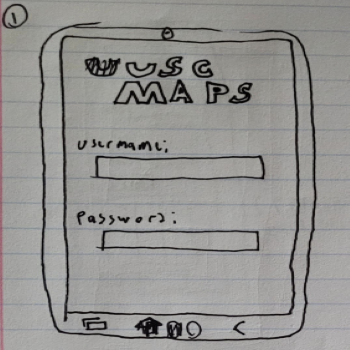 1
USC
MAPS
username:
Password: